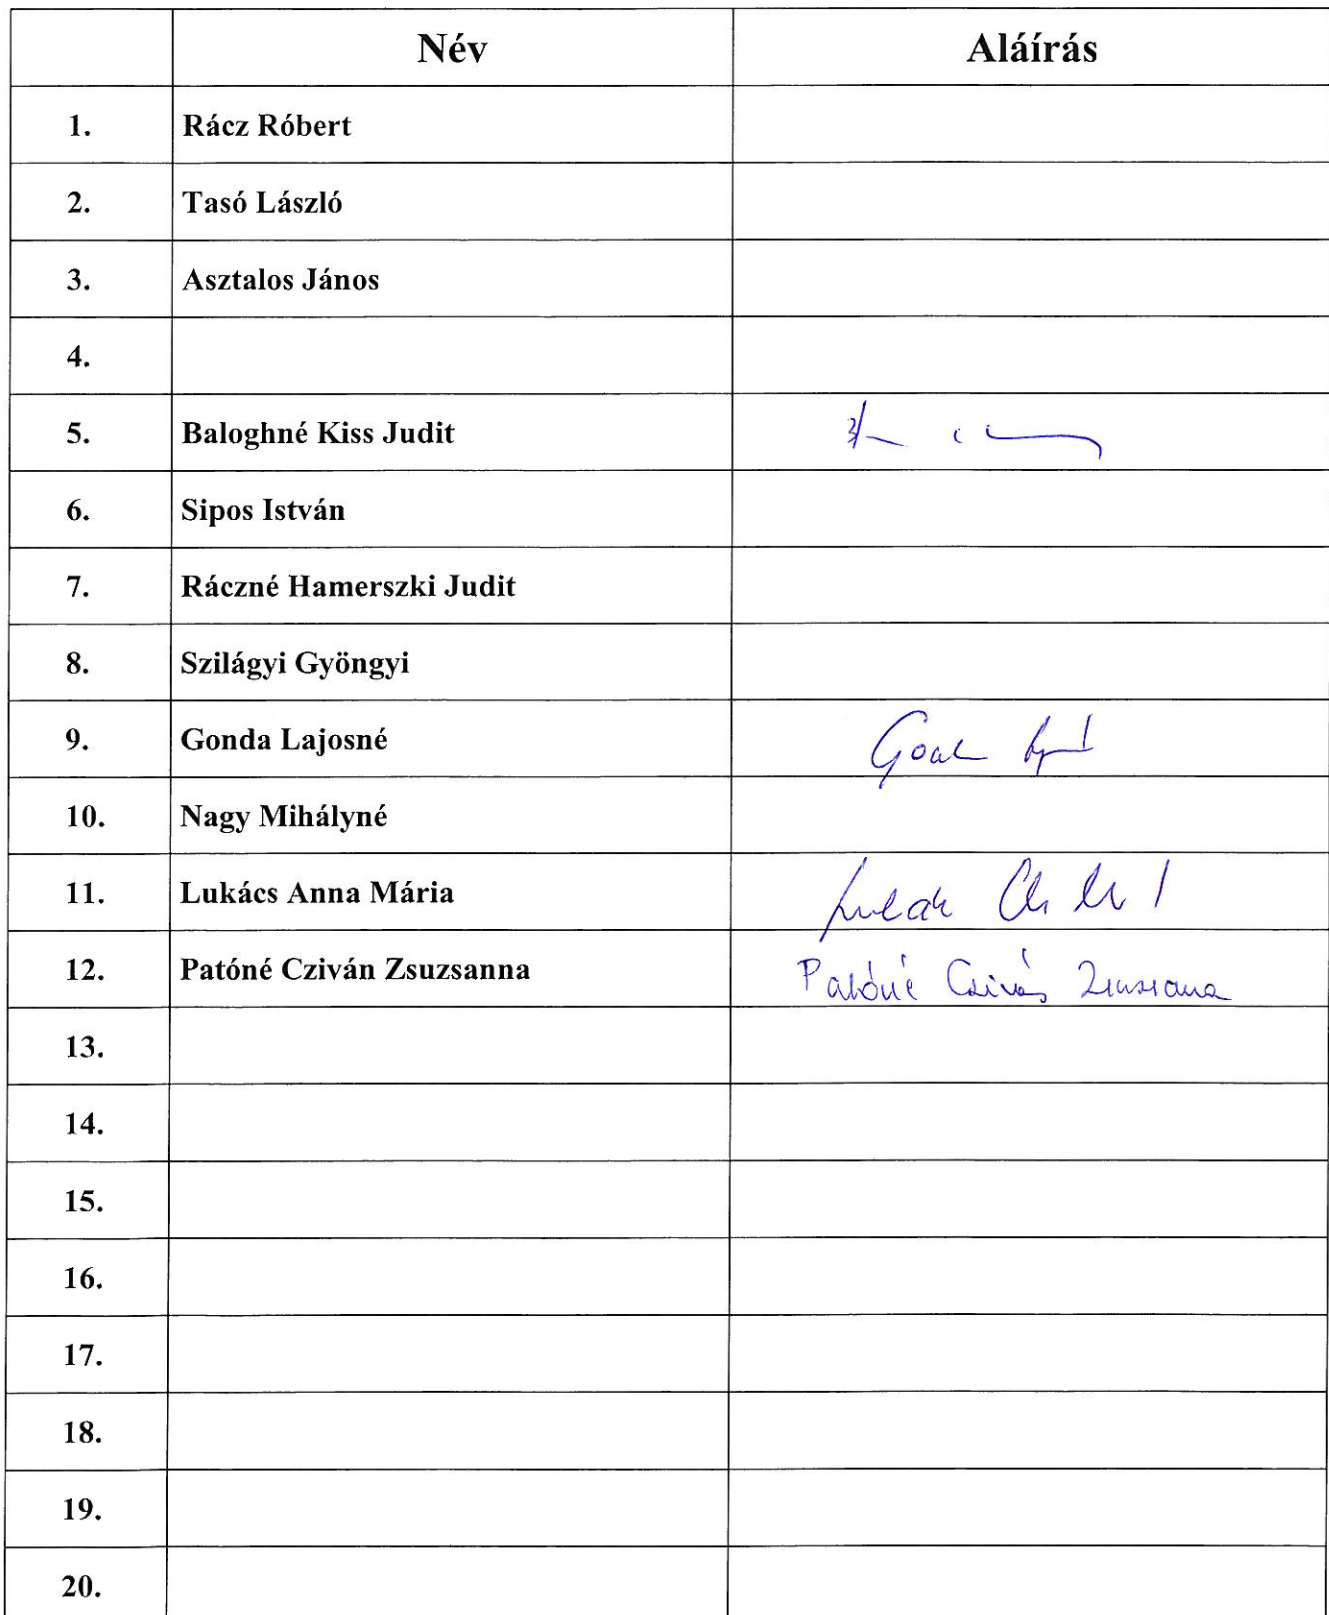 Név Aláírás
1. Rácz Róbert
2. Tasó László
3. Asztalos János
4.
5. Baloghné Kiss Judit
6. Sipos István
7. Ráczné Hamerszki Judit
8. Szilágyi Gyöngyi
9. Gonda Lajosné
10. Nagy Mihályné
11. Lukács Anna Mária
12. Patóné Cziván Zsuzsanna Patóné Cziván Zsuzsanna
13.
14.
15.
16.
17.
18.
19.
20.